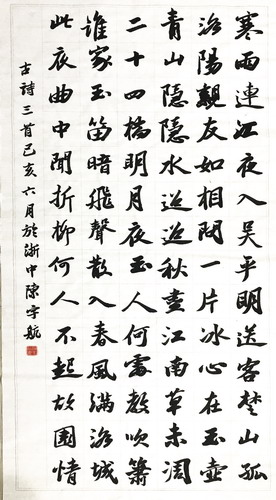 寒雨連江夜入吴平明送客楚山孤
洛陽親友如相問一片冰心在玉壺
青山隱隱水迢迢秋盡江南草未凋
二十四橋明月夜玉人何處教吹簫
誰家玉笛暗飛聲散入春風滿洛城
此夜曲中聞折柳何人不起故園情
古詩三首己亥六月於浙中陳宇航